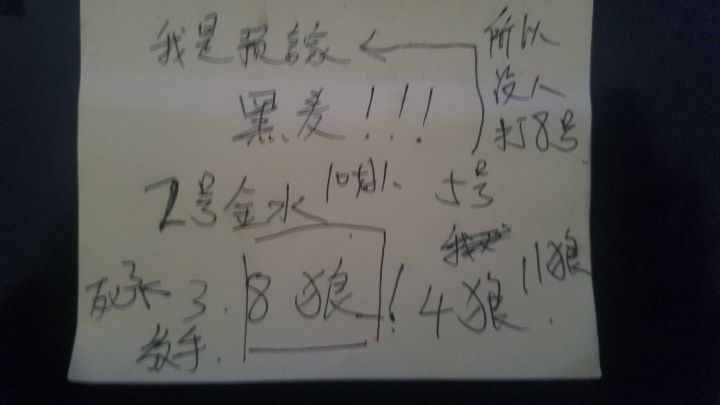 我是预言家
所以
没人
打8号
黑麦!!!
2号金水 10狼 5号
8狼! 4狼 11狼
死 3.
教手.